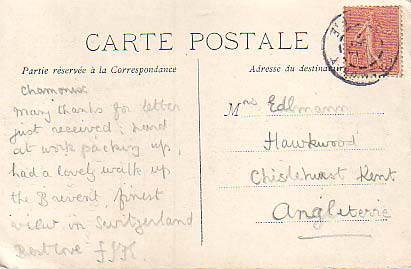 CARTE POSTALE
Partie réservée à la Correspondance
Adresse du destinatai
Chamonix
Many thanks for letter
just received; hard
at work packing up,
had a lovely walk up
the Brevent, finest
view in Switzerland
Best love
Mrs Edlmann
Hawkwood
Chislehurst Kent
Angleterre